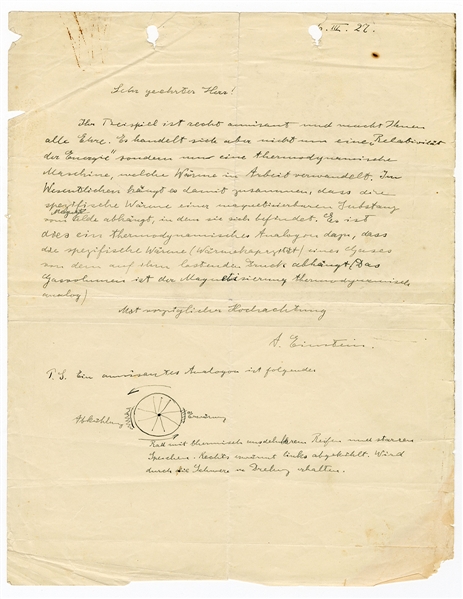 III. 27.
Sehr geehrter Herr!
Ihr Beispiel ist recht amüsant und macht Ihnen
alle Ehre. Es handelt sich aber nicht um eine Relativität
der Energie sondern um eine thermodynamische
Maschine, welche Wärme in Arbeit verwandelt. Im
Wesentlichen hängt es damit zusammen, dass die
spezifische Wärme einer magnetisierbaren Substanz
vom Magnet Felde abhängt, in dem sie sich befindet. Es ist
dies ein thermodynamisches Analogon dazu, dass
die spezifische Wärme (Wärmekapazität) eines Gases
von dem auf ihm lastenden Druck abhängt (Das
Gasvolumen ist der Magnetisierung thermodynamisch
analog)
Mit vorzüglicher Hochachtung
A. Einstein.
P.S. Ein amüsantes Analogon ist folgendes
Abkühlung
Erwärmung
Rad mit thermisch ausdehnbarem Reifen und starren
Speichen. Rechts erwärmt links abgekühlt. Wird
durch die Schwere in Drehung erhalten.